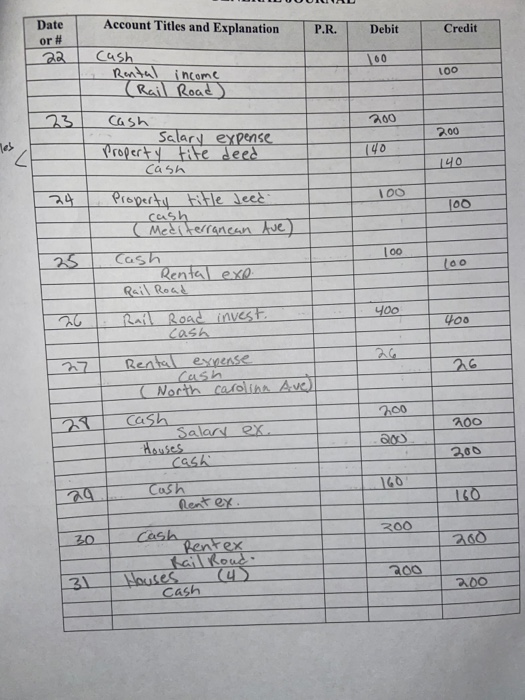 Date or # Account Titles and Explanation P.R. Debit Credit
22 Cash 100
Rental income 100
(Rail Road)
23 Cash 200
Salary expense 200
Property tite deed 140
Cash 140
24 Property title deed 100
cash 100
(Mediterranean Ave)
25 Cash 100
Rental exp. 100
Rail Road
26 Rail Road invest. 400
Cash 400
27 Rental expense 26
Cash 26
(North Carolina Ave)
28 Cash 200
Salary ex. 200
Houses 200
Cash 200
29 Cash 160
Rent ex. 160
30 Cash 200
Rent ex 200
Rail Road.
31 Houses (4) 200
Cash 200